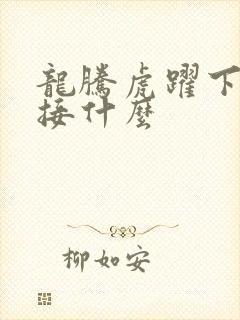 龍騰虎躍下
接什麼
柳如安